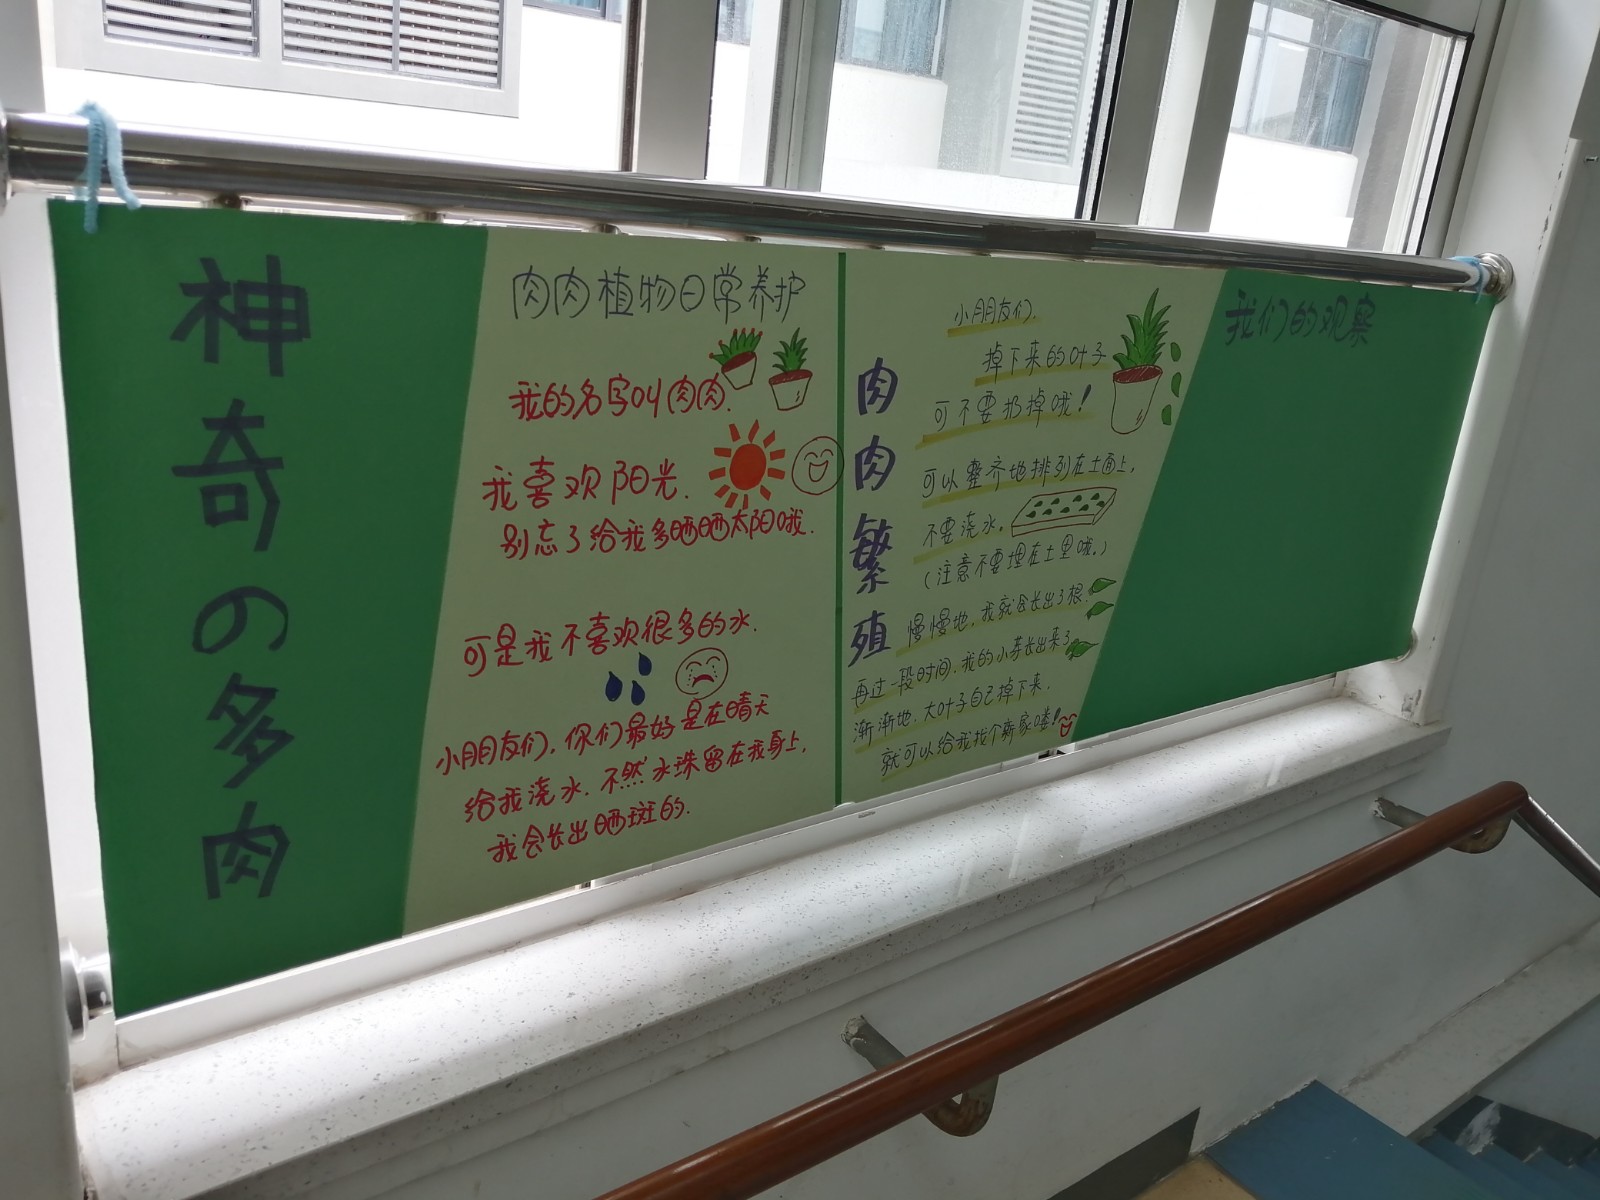 神奇の多肉
肉肉植物日常养护
我的名字叫肉肉.
我喜欢阳光.
别忘了给我多晒晒太阳哦.
可是我不喜欢很多的水.
小朋友们,你们最好是在晴天
给我浇水.不然水珠留在我身上,
我会长出晒斑的.
肉肉繁殖
小朋友们.
掉下来的叶子
可不要扔掉哦!
可以整齐地排列在土面上,
不要浇水。
(注意不要埋在土里哦。)
慢慢地,我就会长出了根.
再过一段时间,我的小芽长出来了
渐渐地,大叶子自己掉下来.
就可以给我找个新家喽!
我们的观察